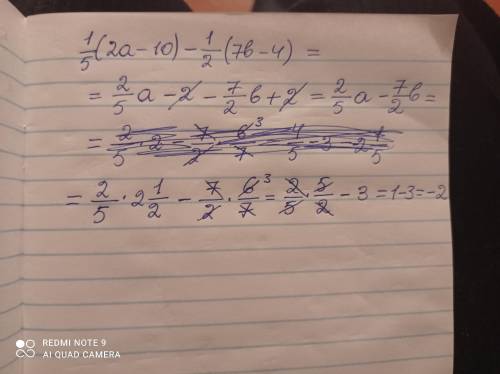 1/5(2a-10)-1/2(7b-4)=
=2/5a-2-7/2b+2=2/5a-7/2b=
=2/5·2 1/2-7/2·6/7 3=2/5·5/2-3=1-3=-2
REDMI NOTE 9
AI QUAD CAMERA